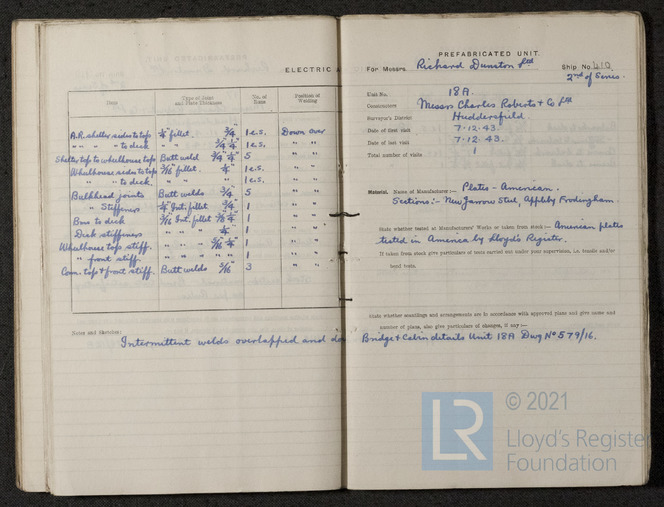 ELECTRIC A
Item Type of Joint and Plate Thickness No. of Runs Position of Welding
A.R. shelter sides to tops ¼" fillet. 1 e.s. Down over
" " " to deck " " 1 e.s. " "
Shelter top to wheelhouse tops Butt weld 5 " "
Wheelhouse sides to tops 3/16" fillet. ¼" 1 e.s. " "
" " to deck. " " " 1 e.s. " "
Bulkhead joints Butt welds 5 " "
" Stiffeners ¼" Int. fillet 1 " "
to deck 3/16" Int. fillet 1 " "
stiffeners " " " ¼" 1 " "
Wheelhouse top stiff. " " " 1 " "
" front stiff. " " " 1 " "
Conn. top & front stiff. Butt welds 3/16" 3 " "
Notes and Sketches:
Intermittent welds overlapped and do
PREFABRICATED UNIT.
For Messrs. Richard Dunston Ltd Ship No. 410
2nd of Series.
Unit No. 18A.
Constructors Messrs Charles Roberts & Co Ltd
Surveyor's District Huddersfield.
Date of first visit 7-12-43.
Date of last visit 7-12-43.
Total number of visits 1
Material. Name of Manufacturer:— Plates – American.
Sections:- New Jarrow Steel, Appleby Frodingham.
State whether tested at Manufacturers' Works or taken from stock:— American plates
tested in America by Lloyds Register.
If taken from stock give particulars of tests carried out under your supervision, i.e. tensile and/or
bend tests.
State whether scantlings and arrangements are in accordance with approved plans and give name and
number of plans, also give particulars of changes, if any:—
Bridge & Cabin details Unit 18A Dwg No 579/16.
© 2021
LR
Lloyd's Registe
Foundation